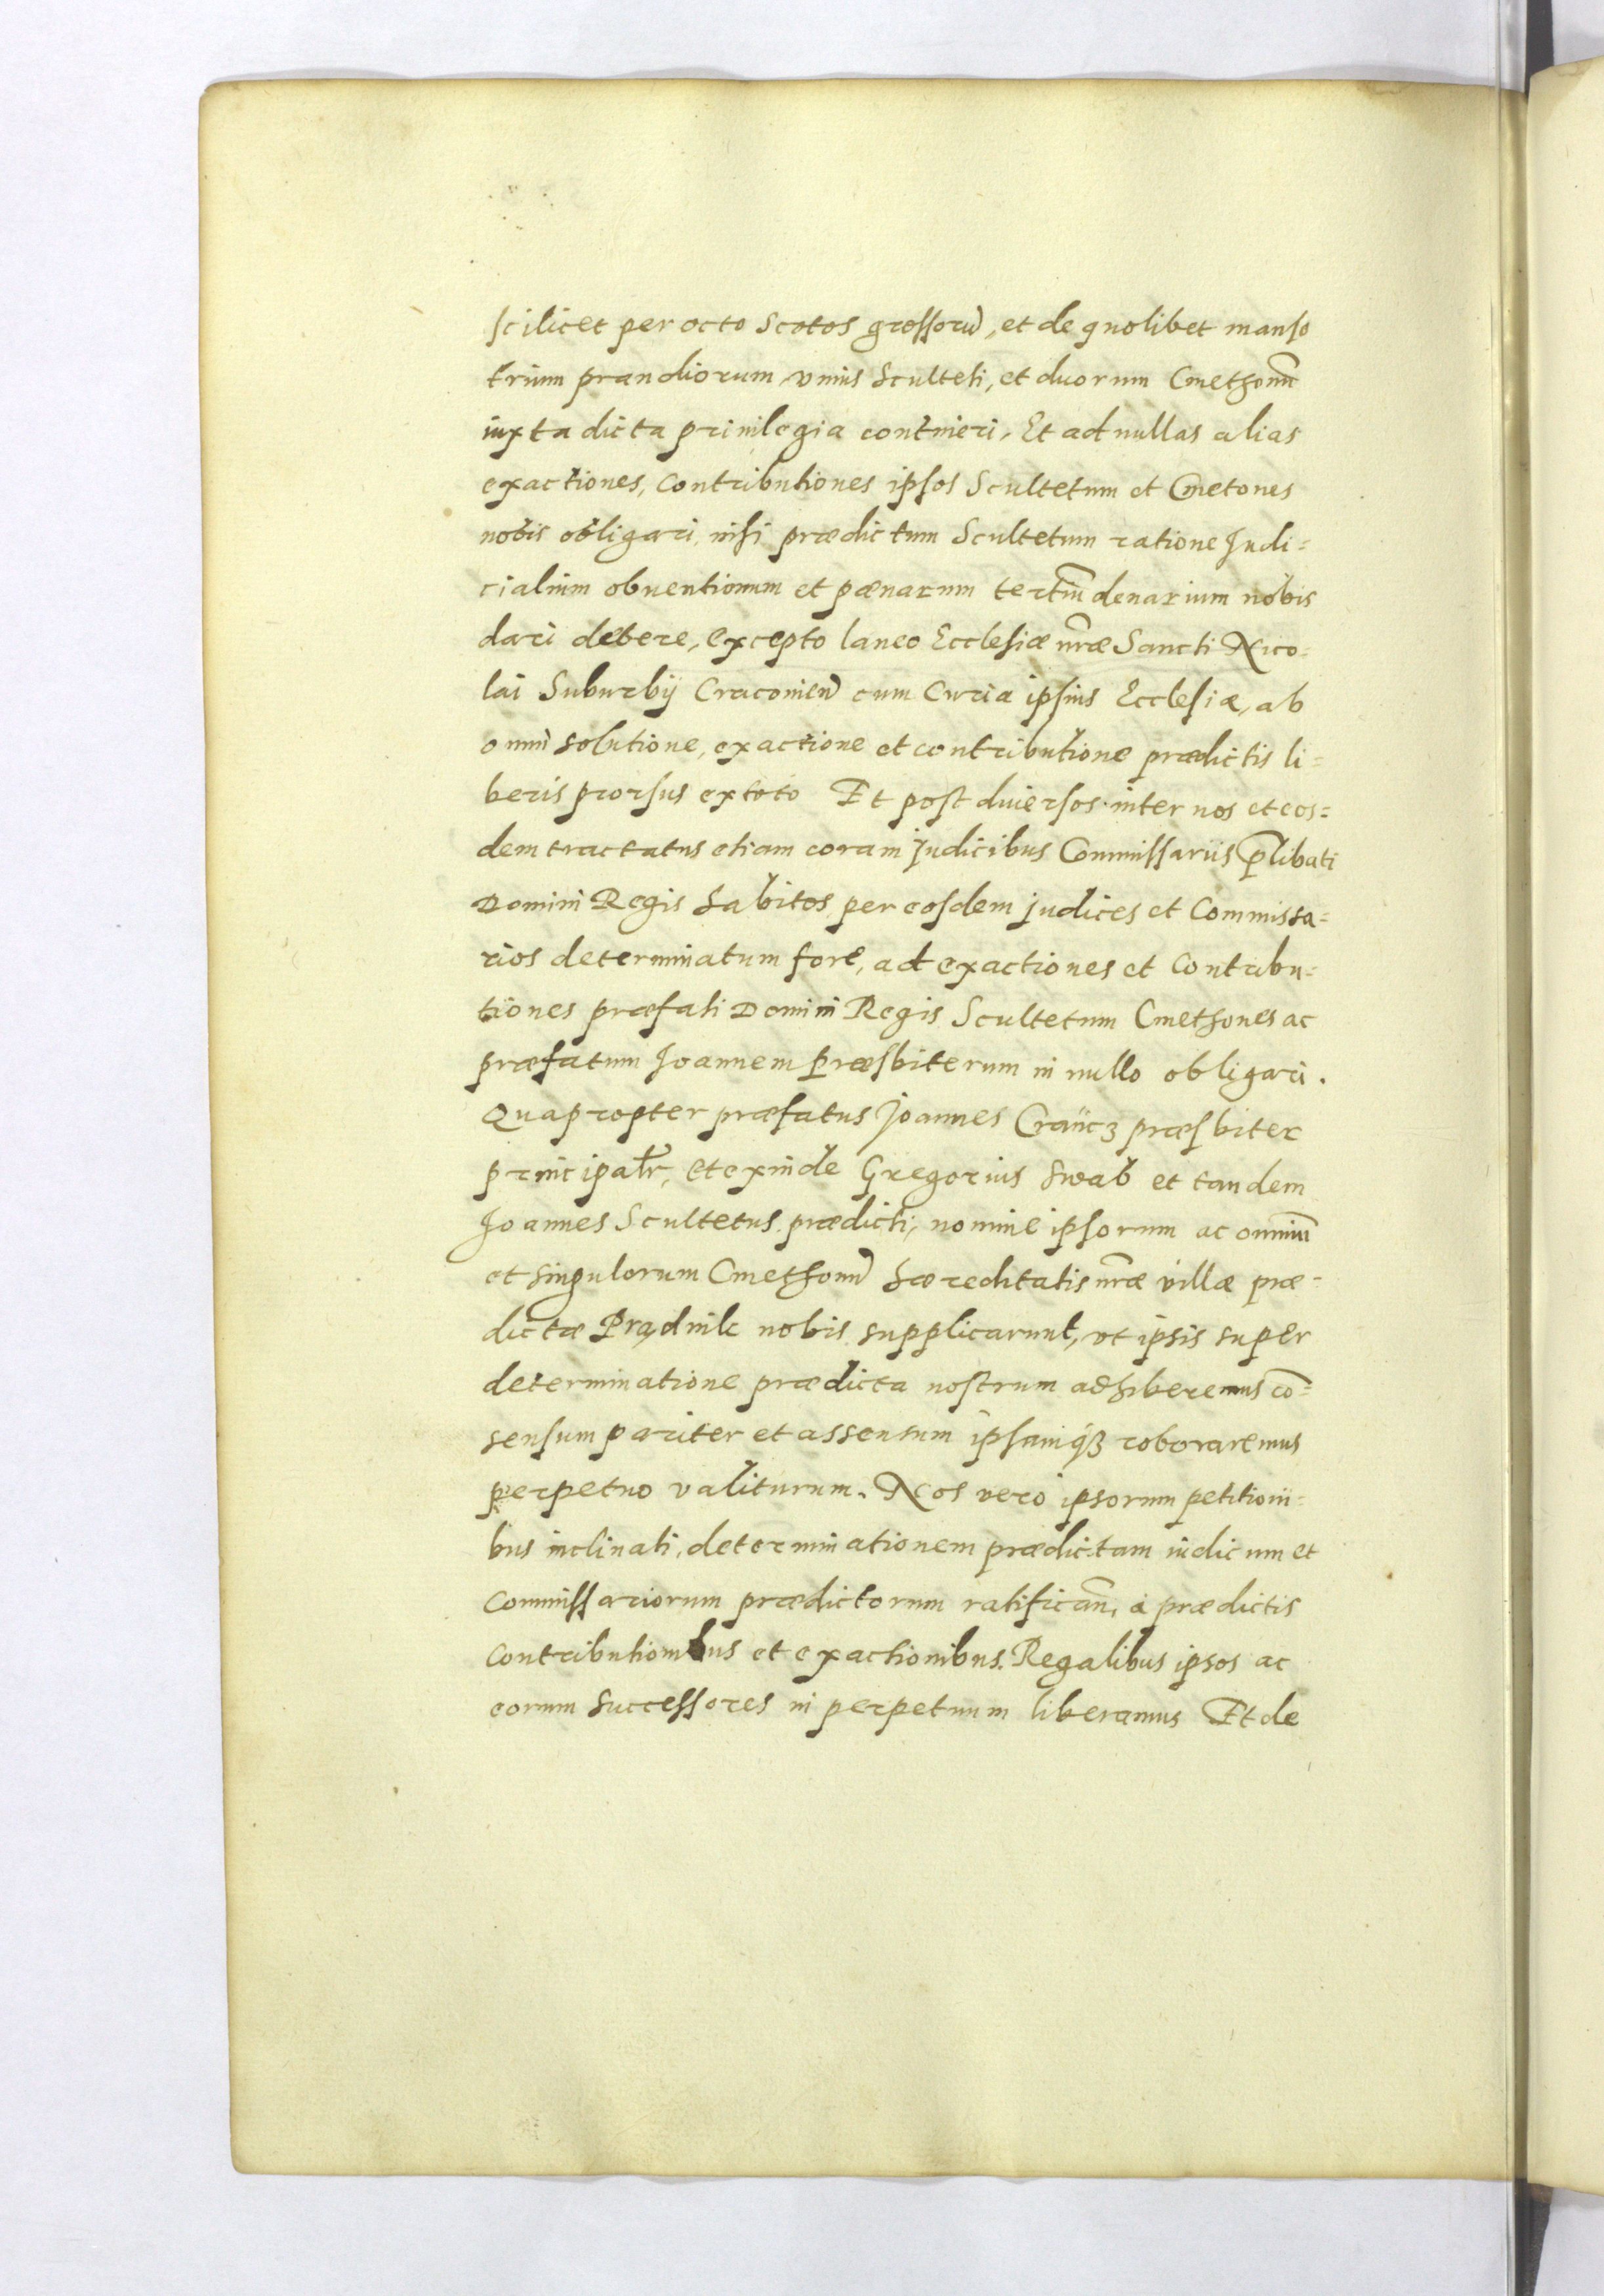 scilicet per octo Scotos grossorũ, et de quolibet manso
trium prandiorum, vnius Sculteti, et duorum Cmethonũ
iuxta dicta priuilegia contineri, Et ad nullas alias
exactiones, Contributiones ipsos Scultetum et Cmetones
nobis obligari, nisi prædictum Scultetum ratione Judi=
cialium obuentionum et pænarum tertiũ denarium nobis
dari debere, excepto laneo Ecclesiæ nr̃æ Sancti Nico=
lai Suburbij Cracouien̄ cum Curia ipsius Ecclesiæ, ab
omni solutione, exactione et contributione prædictis li=
beris prorsus ex toto Et post diuersos inter nos et eos=
dem tractatus etiam coram Judicibus Commissarijs p̄libati
Domini Regis habitos per eosdem judices et Commissa=
rios determinatum fore, ad exactiones et Contribu=
tiones præfati Domini Regis Scultetum Cmethones ac
præfatum Joannem Præsbiterum in nullo obligari.
Quapropter præfatus Joannes Crancz præsbiter
principalr̃, et exinde Gregorius Swab et tandem
Joannes Scultetus prædicti, nomine ipsorum ac omniũ
et singulorum Cmethonũ hæreditatis nr̃æ villæ præ=
dictæ Prądnik nobis supplicarunt, vt ipsis super
determinatione prædicta nostrum adhiberemus cõ=
sensum pariter et assensum ipsamq̃ roboraremus
perpetuo valiturum. Nos vero ipsorum petitioni=
bus inclinati, determinationem prædictam iudicum et
Commissariorum prædictorum ratificam̃, à prædictis
Contributionibus et exactionibus Regalibus ipsos ac
eorum Successores in perpetuum liberamus Et de